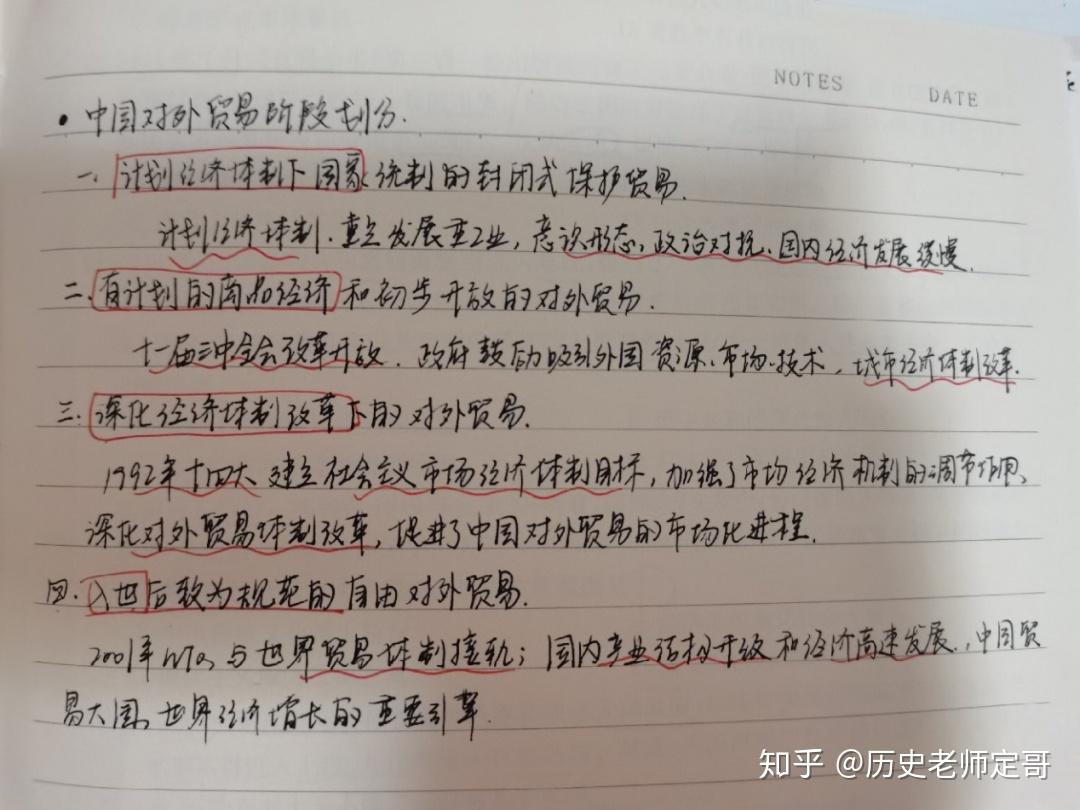 NOTES DATE
• 中国对外贸易阶段划分.
一、计划经济体制下国家统制的封闭式保护贸易.
计划经济体制.重点发展重工业,意识形态,政治对抗、国内经济发展缓慢.
二、有计划的商品经济和初步开放的对外贸易.
十一届三中全会改革开放.政府鼓励吸引外国资源、市场、技术,城市经济体制改革.
三.深化经济体制改革下的对外贸易.
1992年十四大建立社会主义市场经济体制目标,加强了市场经济机制的调节作用、
深化对外贸易体制改革,促进了中国对外贸易的市场化进程.
四.入世后较为规范的自由对外贸易.
2001年WTO与世界贸易体制接轨;国内产业结构升级和经济高速发展.,中国贸
易大国、世界经济增长的重要引擎.
知乎 @历史老师定哥